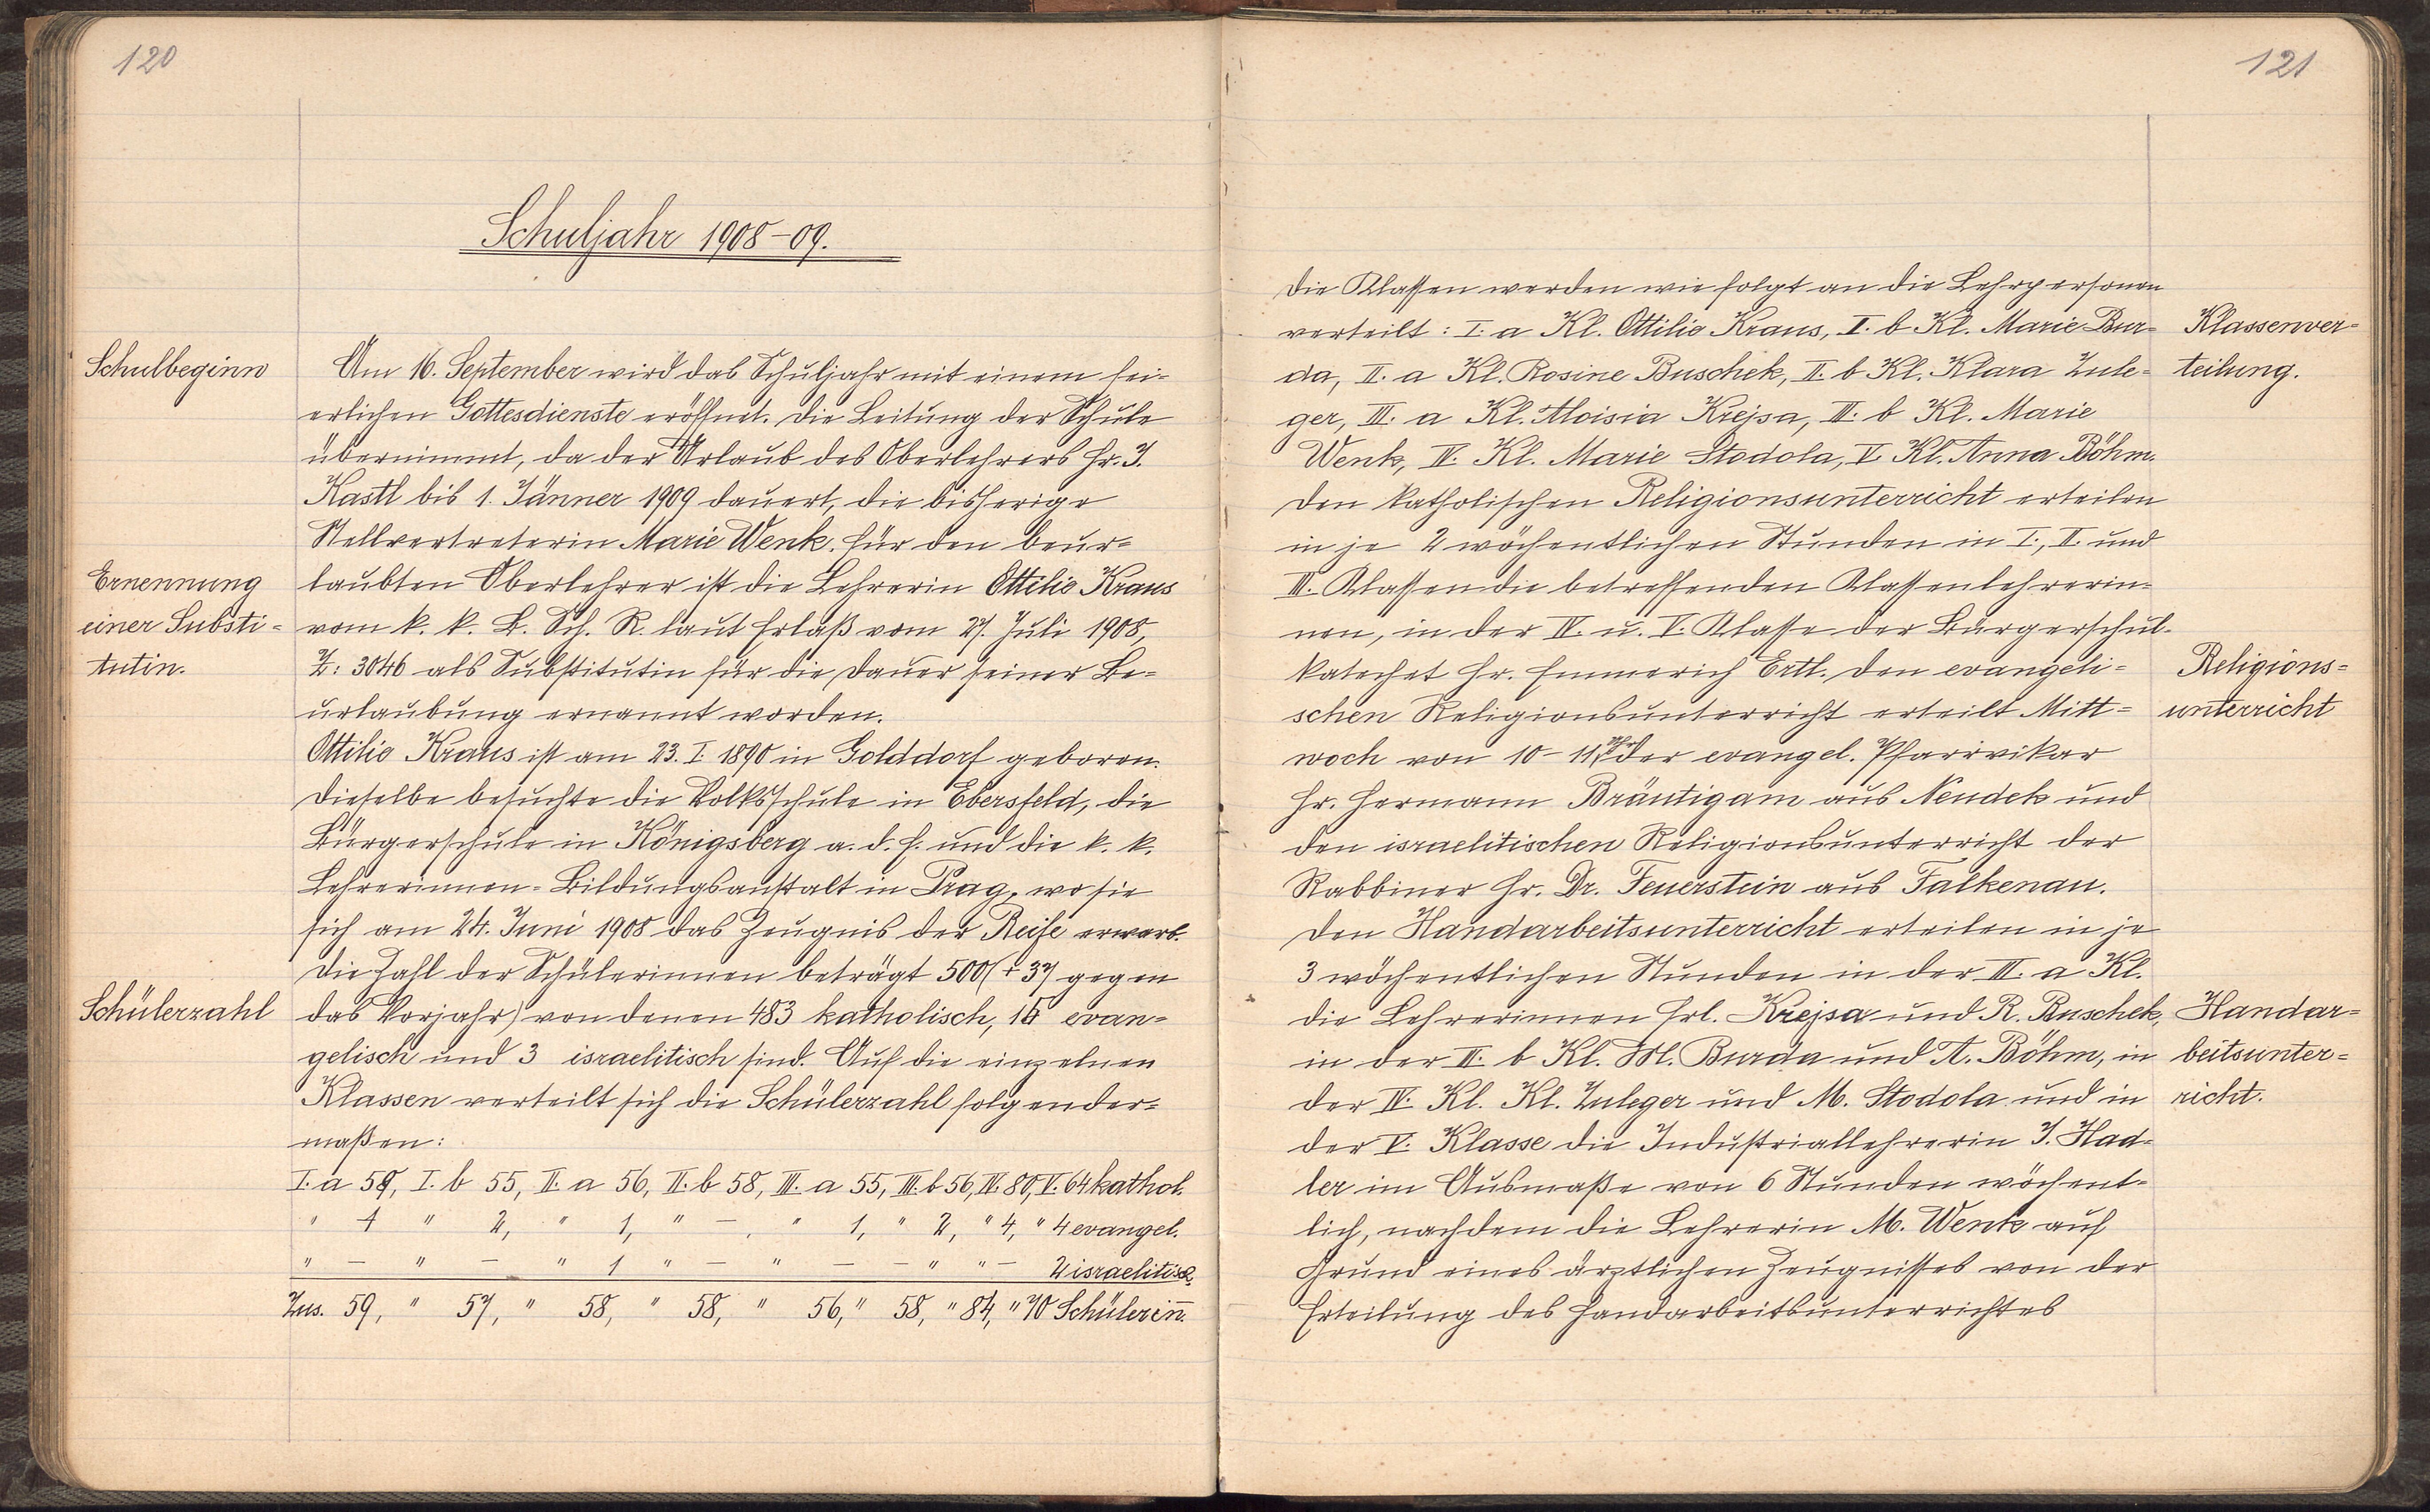 120
Schuljahr 1908-09.
Schulbeginn
Am 16. September wird das Schuljahr mit einem fei-
erlichen Gottesdienste eröffnet. Die Leitung der Schule
übernimmt, da der Urlaub des Oberlehrers Hr. J.
Kastl bis 1. Jänner 1909 dauert, die bisherige
Stellvertreterin Marie Wenk. Für den beur=
Ernennung
einer Substi=
tutin.
laubten Oberlehrer ist die Lehrerin Ottilie Kraus
vom k. k. B. Sch. R. laut Erlaß vom 27. Juli 1908,
Z: 3046 als Substitutin für die Dauer seiner Be=
urlaubung ernannt worden.
Ottilie Kraus ist am 23. I. 1890 in Golddorf geboren.
Dieselbe besuchte die Volksschule in Ebersfeld, die
Bürgerschule in Königsberg a. d. E. und die k. k.
Lehrerinnen=Bildungsanstalt in Prag, wo sie
sich am 24. Juni 1908 das Zeugnis der Reife erwarb.
Die Zahl der Schülerinnen beträgt 500 (+ 37 gegen
Schülerzahl
das Vorjahr) von denen 483 katholisch, 15 evan=
gelisch und 3 israelitisch sind. Auf die einzelnen
Klassen verteilt sich die Schülerzahl folgender=
maßen:
I. a 58, I. b 55, II. a 56, II. b 58, III. a 55, III. b 56, IV. 80, V. 64 kathol.
" 1 " 2, " 1, " -, " 1, " 2, " 4, " 4 evangel.
" - " - " 1 " - " - - " " - 2 israelitisch.
Zus. 59, " 57, " 58, " 58, " 56, " 58, " 84, " 70 Schülerin̄.
121
Die Klassen werden wie folgt an die Lehrpersonen
verteilt: I. a Kl. Ottilie Kraus, I. b Kl. Marie Bur=
da, II. a Kl. Rosine Buschek, II. b Kl. Klara Zule=
ger, III. a Kl. Aloisia Krejsa, III. b Kl. Marie
Wenk, IV. Kl. Marie Stodola, V. Kl. Anna Böhm.
Klassenver=
teilung.
Den katholischen Religionsunterricht erteilen
in je 2 wöchentlichen Stunden in I., II. und
III. Klassen die betreffenden Klassenlehrerin=
nen, in der IV. u. V. Klasse der Bürgerschul-
katechet Hr. Emmerich Ertl. Den evangeli=
schen Religionsunterricht erteilt Mitt=
Religions=
unterricht
woch von 10-11 Uhr der evangel. Pfarrvikar
Hr. Hermann Bräutigam aus Neudek und
den israelitischen Religionsunterricht der
Rabbiner Hr. Dr. Feuerstein aus Falkenau.
Den Handarbeitsunterricht erteilen in je
3 wöchentlichen Stunden in der III. a Kl.
die Lehrerinnen Frl. Krejsa und R. Buschek,
in der III. b Kl. M. Burda und A. Böhm, in
der IV. Kl. Kl. Zuleger und M. Stodola und in
Handar=
beitsunter=
richt.
der V. Klasse die Industriallehrerin J. Had=
ler im Ausmaße von 6 Stunden wöchent=
lich, nachdem die Lehrerin M. Wenk auf
Grund eines ärztlichen Zeugnisses von der
Erteilung des Handarbeitsunterrichtes